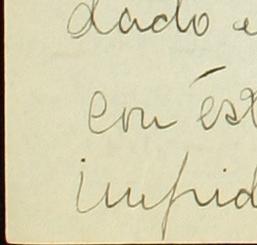 dado e
con ést
impid